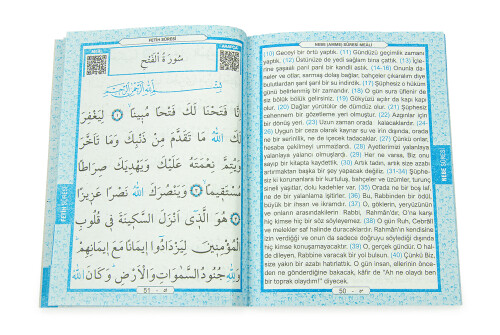 FETİH SÛRESİ
سُورَةُ الْفَتْحِ
بِسْمِ اللّٰهِ الرَّحْمٰنِ الرَّحِيمِ
اِنَّا فَتَحْنَا لَكَ فَتْحًا مُبِينًا ۙ ﴿١﴾ لِيَغْفِرَ
لَكَ اللّٰهُ مَا تَقَدَّمَ مِنْ ذَنْبِكَ وَمَا تَاَخَّرَ
وَيُتِمَّ نِعْمَتَهُ عَلَيْكَ وَيَهْدِيَكَ صِرَاطًا
مُسْتَقِيمًا ۙ ﴿٢﴾ وَيَنْصُرَكَ اللّٰهُ نَصْرًا عَزِيزًا
﴿٣﴾ هُوَ الَّذٖٓى اَنْزَلَ السَّكٖينَةَ فٖى قُلُوبِ
الْمُؤْمِنٖينَ لِيَزْدَادُٓوا اٖيمَانًا مَعَ اٖيمَانِهِمْ
وَلِلّٰهِ جُنُودُ السَّمٰوَاتِ وَالْاَرْضِ وَكَانَ اللّٰهُ
51
FETİH SÛRESİ
NEBE (AMME) SÛRESİ MEÂLİ
(10) Geceyi bir örtü yaptık. (11) Gündüzü geçimlik zamanı
yaptık. (12) Üstünüze de yedi sağlam bina çattık. (13) İçle-
rine şaşaalı parıl parıl bir kandil astık. (14-16) Onunla da-
neler ve otlar, sarmaş dolaş bağlar, bahçeler çıkaralım diye
bulutlardan şarıl şarıl bir su indirdik. (17) Şüphesiz o hüküm
günü belirlenmiş bir zamandır. (18) O gün sura üflenir de
siz bölük bölük gelirsiniz. (19) Gökyüzü açılır da kapı kapı
olur. (20) Dağlar yürütülür de dümdüz olur. (21) Şüphesiz
cehennem bir gözetleme yeri olmuştur. (22) Azgınlar için
bir dönüş yeri. (23) Uzun zaman orada kalacaklardır. (24-
26) Uygun bir ceza olarak kaynar su ve irin dışında, orada
ne bir serinlik, ne de içecek tadacaklar. (27) Çünkü onlar,
hesaba çekilmeyi ummazlardı. (28) Âyetlerimizi yalanlaya
yalanlaya yalancı olmuşlardı. (29) Her ne varsa, Biz onu
sayıp bir kitapta kaydettik. (30) Artık tadın, artık size azabı
artırmaktan başka bir şey yapacak değiliz. (31-34) Şüphe-
siz ki korunanlara bir kurtuluş, bahçeler ve üzümler, turunç
sineli yaşıtlar, dolu kadehler var. (35) Orada ne bir boş laf,
ne de bir yalanlama işitirler. (36) Bu, Rabbinden bir ödül,
büyük bir ihsan ve ikramdır. (37) O, göklerin, yeryüzünün
ve onların arasındakilerin Rabbi, Rahmân'dır. O'na karşı
hiç kimse hiç bir söz söyleyemez. (38) O gün Ruh, Cebrâîl
ve melekler saf halinde duracaklardır. Rahmân'ın kendisine
izin verdiği ve onun da sadece doğruyu söylediği dışında
hiç kimse konuşamayacaktır. (39) O, gerçek gündür. O hal-
de dileyen, Rabbine varacak bir yol bulsun. (40) Çünkü Biz,
size yakın bir azabı hatırlattık. O gün insan, ellerinin önce-
den ne gönderdiğine bakacak, kâfir de "Ah ne olaydı ben
bir toprak olaydım!" diyecek.
50
NEBE SÛRESİ